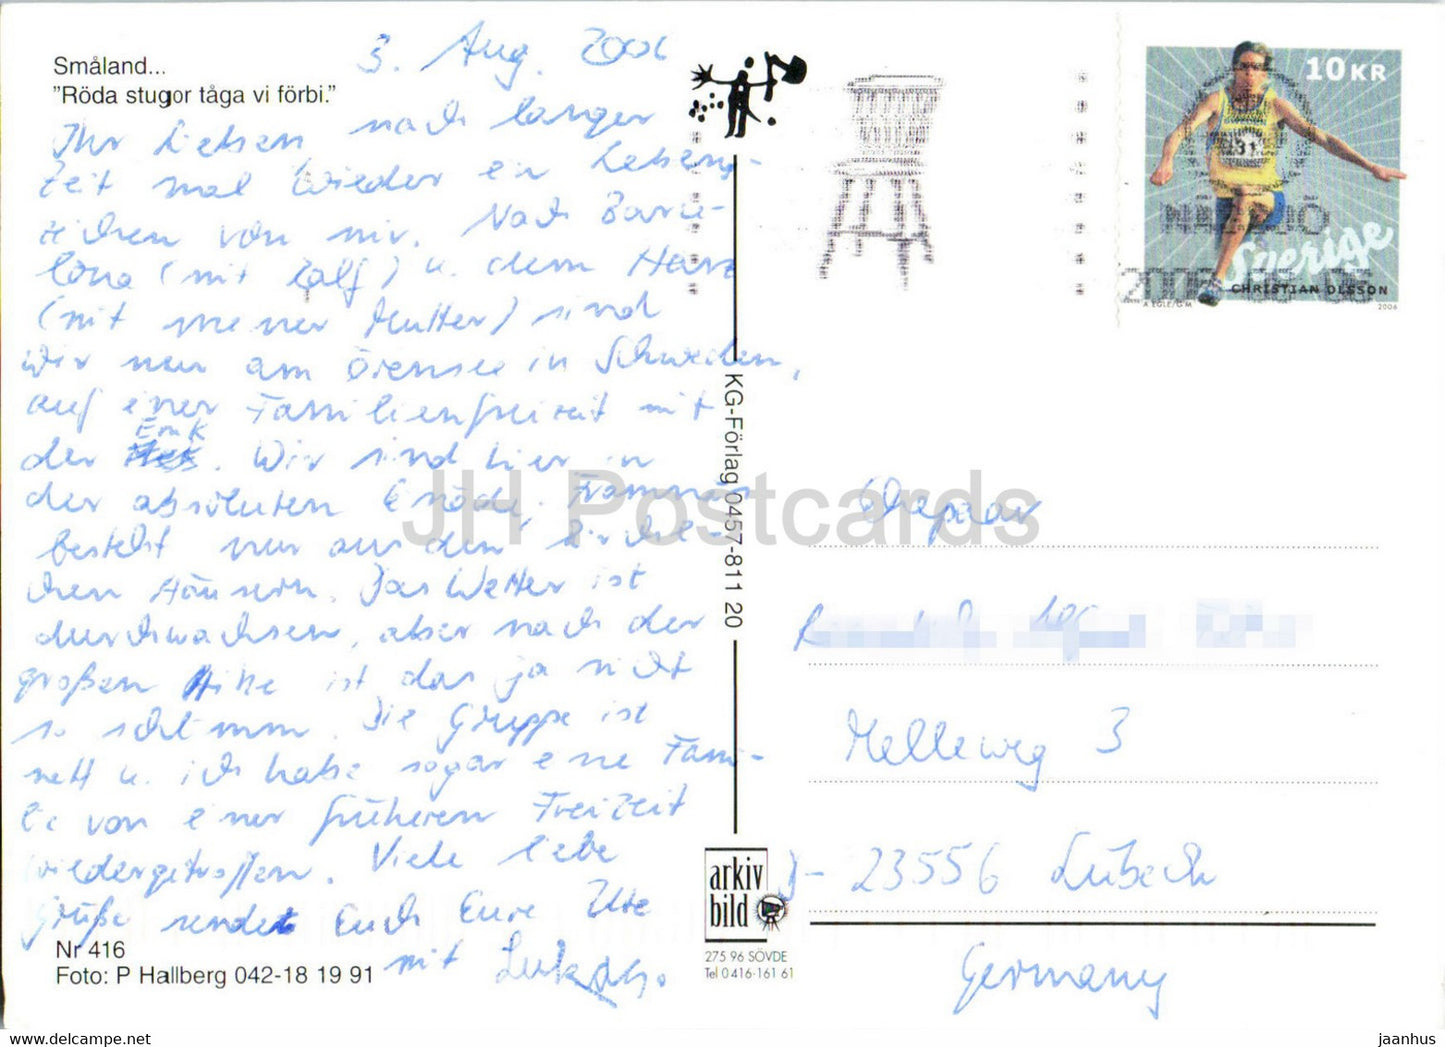 Småland...
"Röda stugor tåga vi förbi."
3. Aug. 2006
Ihr Lieben nach langer
Zeit mal wieder ein Lebens-
zeichen von mir. Nach Barce-
lona (mit Ralf) u. dem Harz
(mit meiner Mutter) sind
wir nun am Örensee in Schweden,
auf einer Familienfreizeit mit
der
Wir sind hier in
der absoluten Einöde. Frammäs
besteht nur aus den
chen Häusern. Das Wetter ist
durchwachsen, aber nach der
großen Hitze ist das ja nicht
so schlimm. Die Gruppe ist
nett u. ich habe sogar eine Fami-
lie von einer früheren Freizeit
wiedergetroffen. Viele liebe
Grüße sendet Euch Eure Ute
mit Lukas.
Nr 416
Foto: P Hallberg 042-18 19 91
KG-Förlag 0457-811 20
arkiv
bild
275 96 SÖVDE
Tel 0416-161 61
10 KR
31
Sverige
CHRISTIAN OLSSON
2006
Ehepaar
Melleweg 3
D-23556 Lübeck
Germany
JH Postcards
www.hippostcard.com
jaanhus